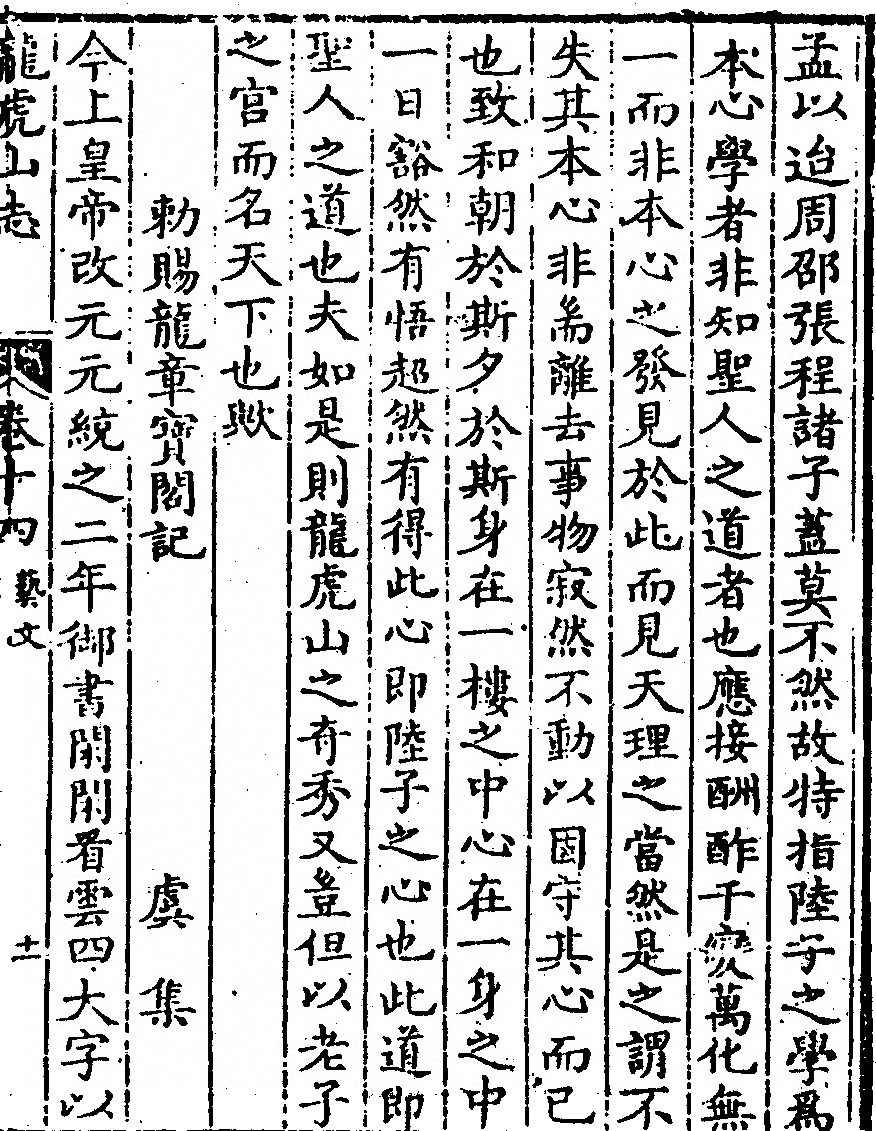 孟以迨周邵張程諸子蓋莫不然故特指陸子之學爲
本心學者非知聖人之道者也應接酬酢千變萬化無
一而非本心之發見於此而見天理之當然是之謂不
失其本心非爲離去事物寂然不動以固守其心而已
也致和朝於斯夕於斯身在一樓之中心在一身之中
一日豁然有悟超然有得此心即陸子之心也此道即
聖人之道也夫如是則龍虎山之奇秀又豈但以老子
之宮而名天下也歟
勅賜龍章寶閣記　虞集
今上皇帝改元元統之二年御書閑閑看雲四大字以
龍虎山志　卷十四　藝文　十一